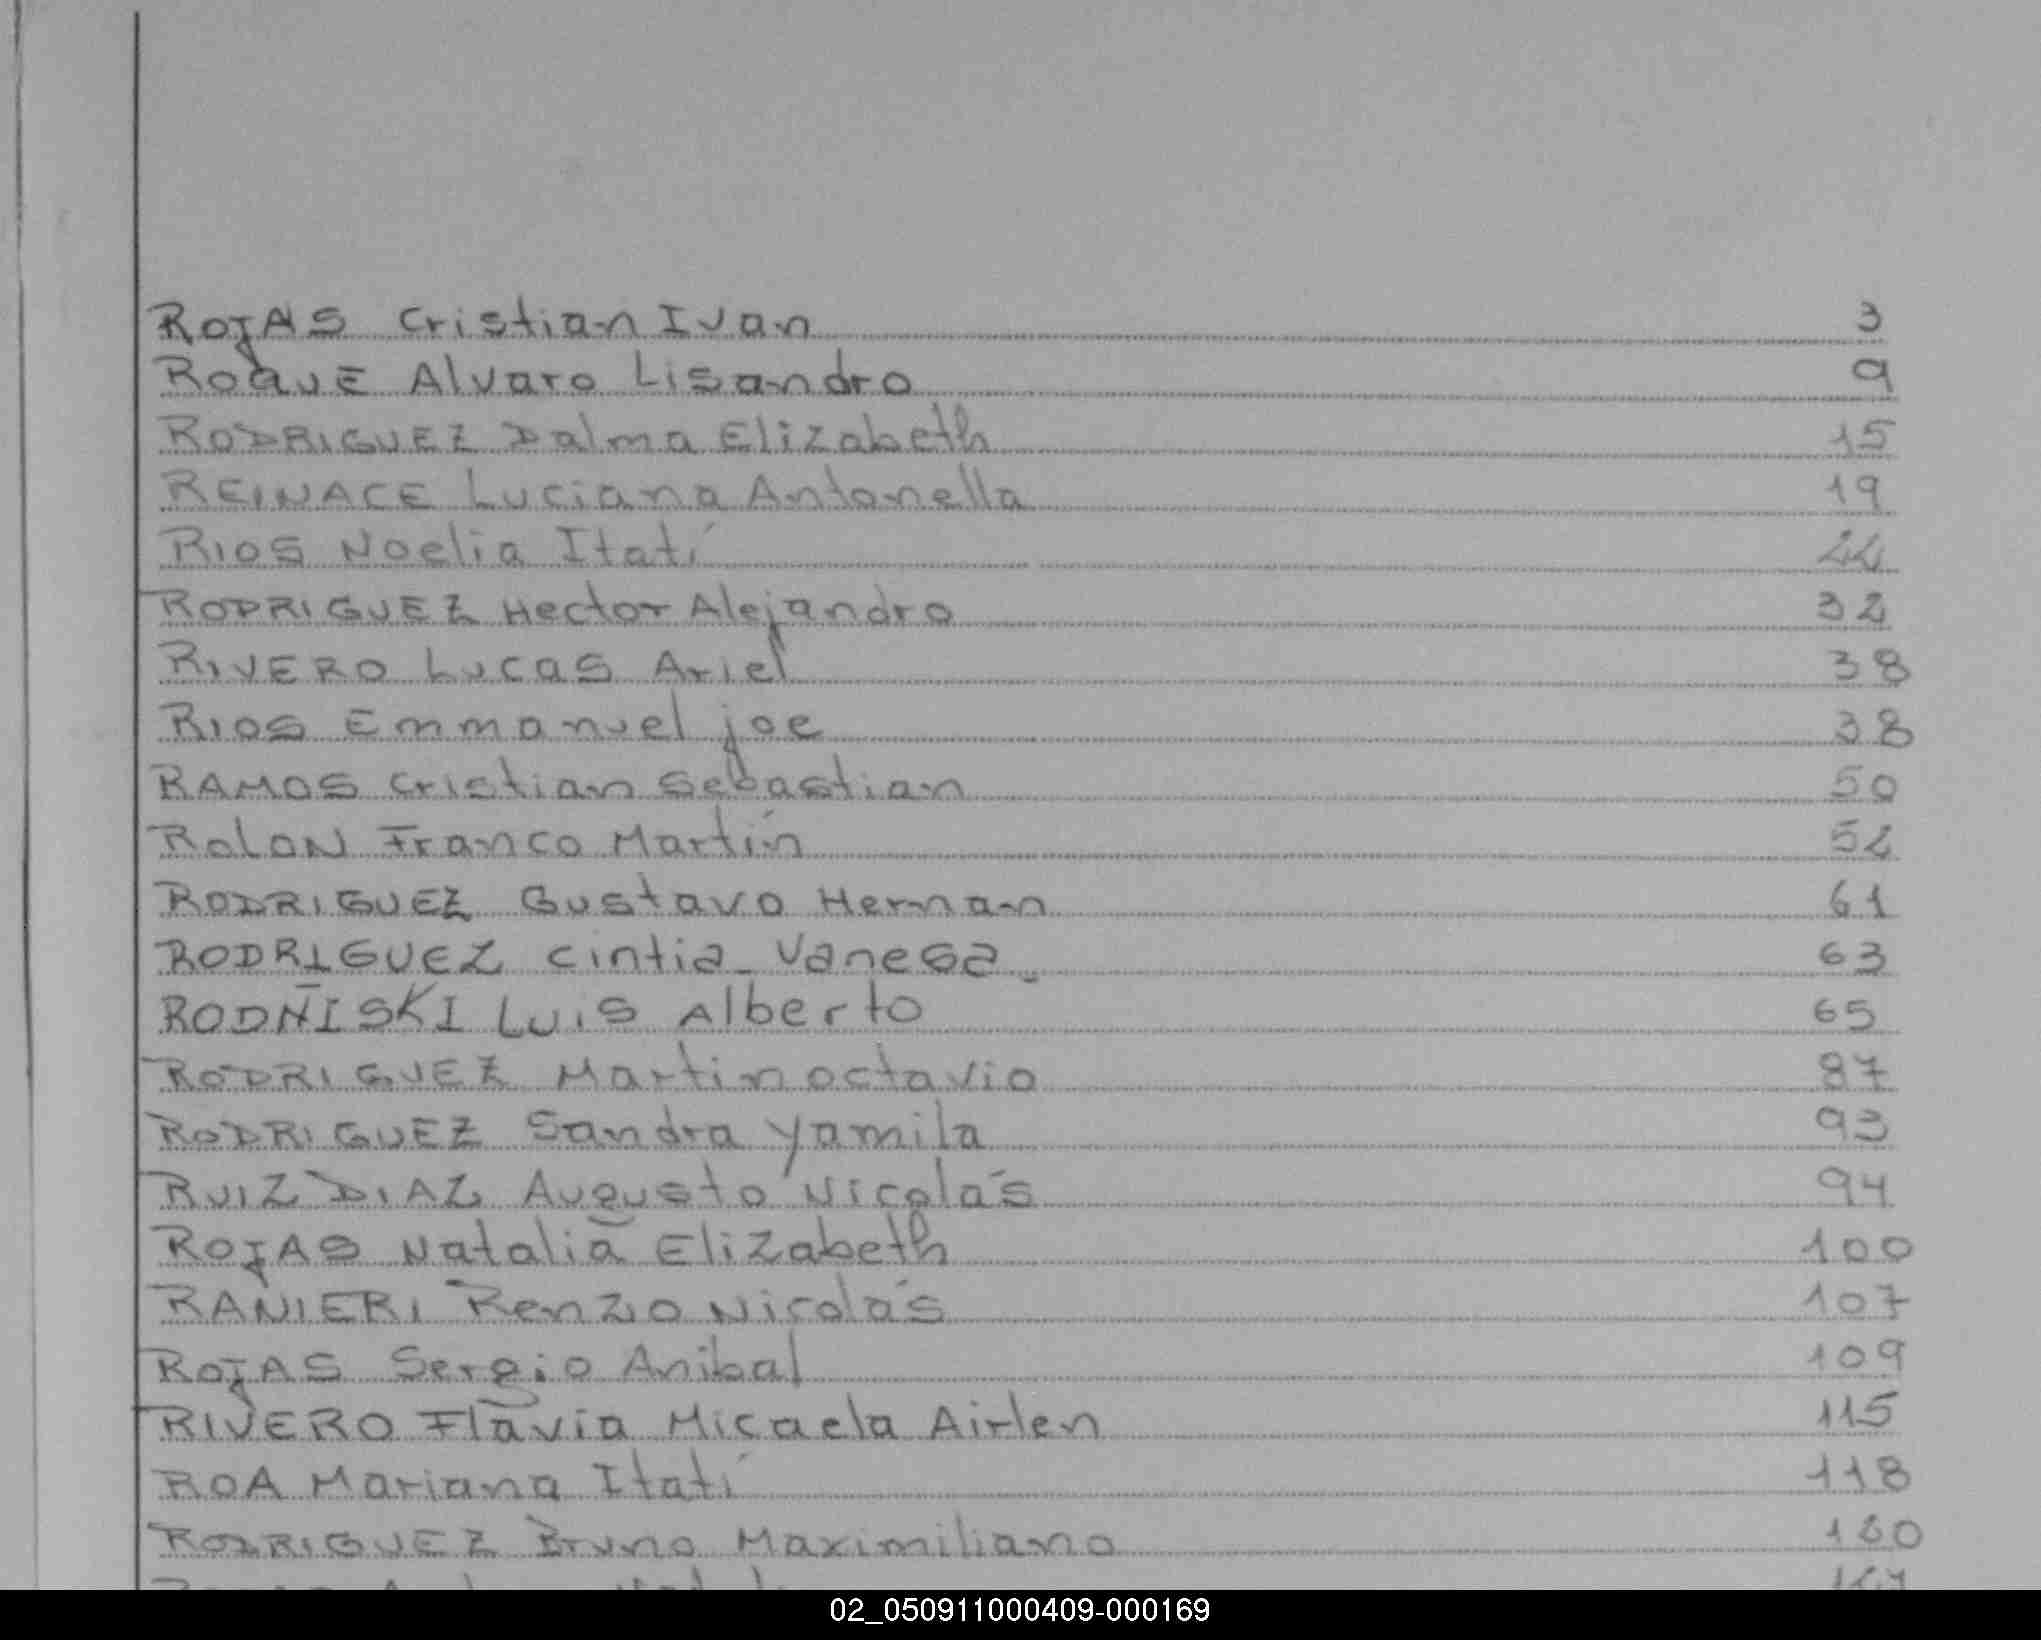 ROJAS Cristian Ivan 3
ROQUE Alvaro Lisandro 9
RODRIGUEZ Dalma Elizabeth 15
REINACE Luciana Antonella 19
RIOS Noelia Itatí
RODRIGUEZ Hector Alejandro 32
RIVERO Lucas Ariel 38
RIOS Emmanuel joe 38
RAMOS Cristian Sebastian 50
ROLON Franco Martín 52
RODRIGUEZ Gustavo Hernan 61
RODRIGUEZ Cintia Vanesa 63
RODÑISKI Luis Alberto 65
RODRIGUEZ Martin octavio 87
RODRIGUEZ Sandra Yamila 93
RUIZ DIAZ Augusto Nicolás 94
ROJAS Natalia Elizabeth 100
RANIERI Renzo Nicolás 107
ROJAS Sergio Anibal 109
RIVERO Flavia Micaela Airlen 115
ROA Mariana Itatí 118
RODRIGUEZ Bruno Maximiliano
02_050911000409-000169